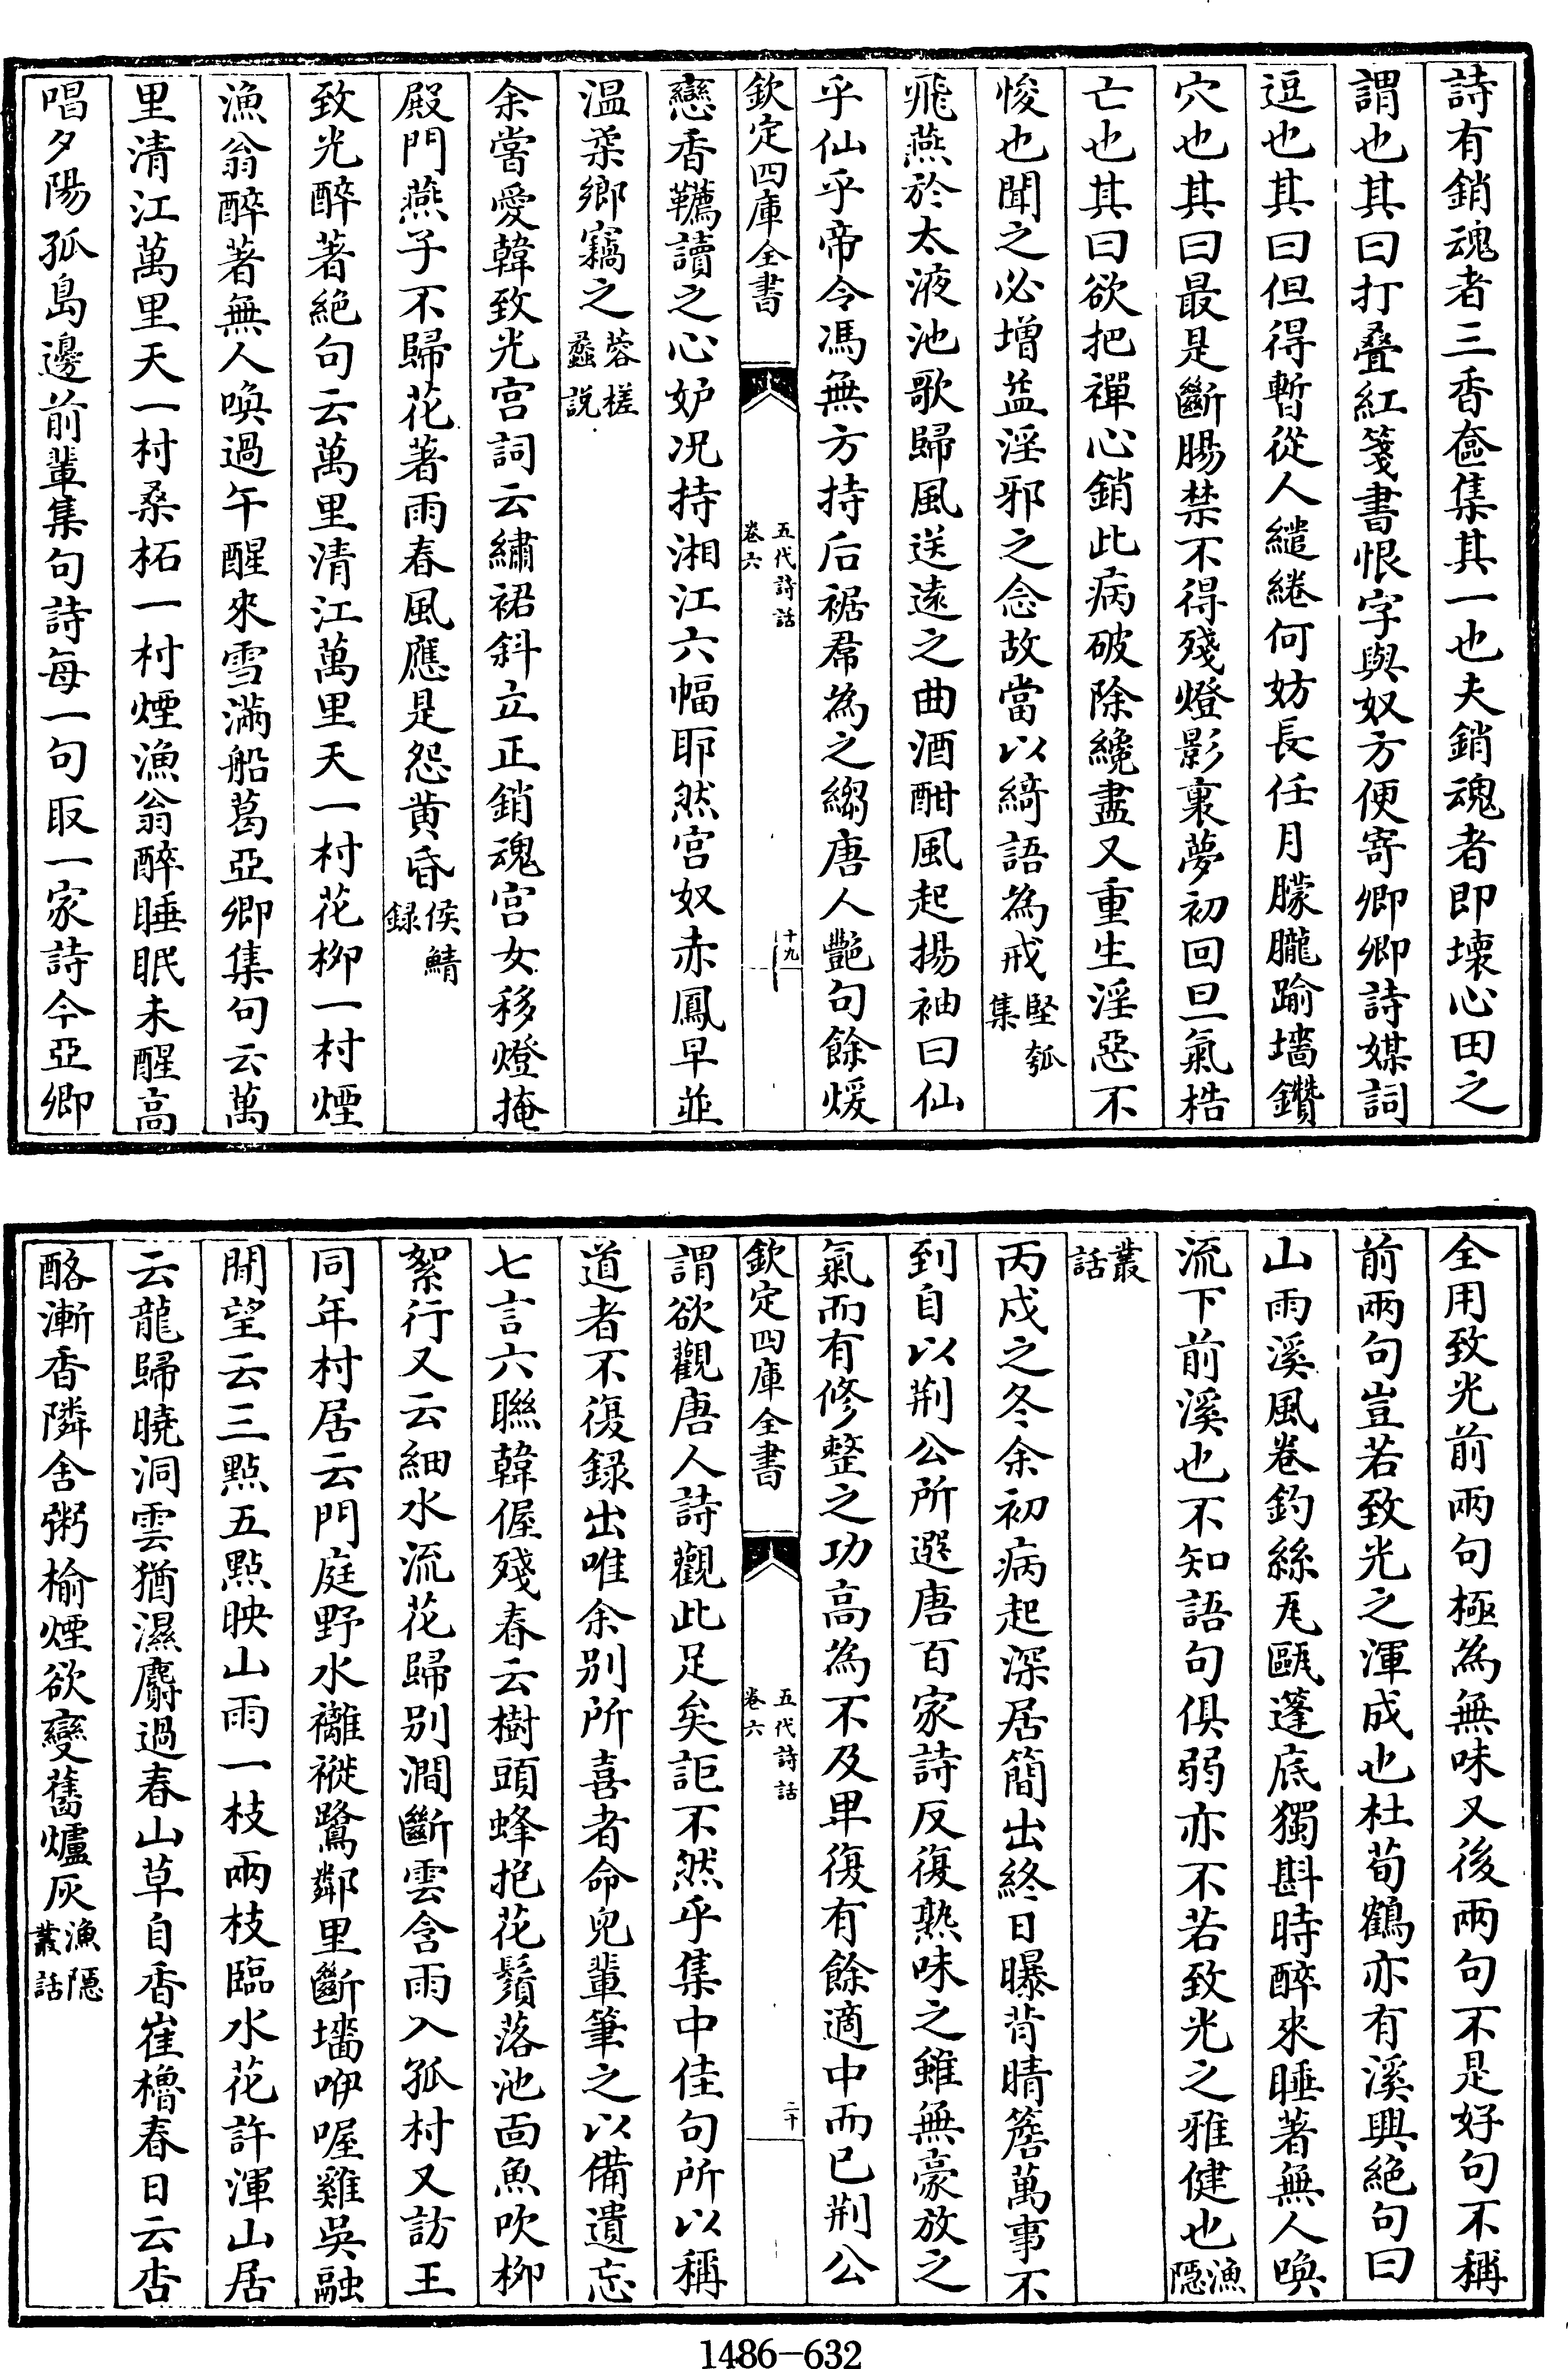 詩有銷魂者三香奩集其一也夫銷魂者即壊心田之
謂也其曰打疊紅箋書恨字與奴方便寄卿卿詩媒詞
逗也其曰但得暫從人繾綣何妨長任月朦朧踰墻鑽
穴也其曰最是斷腸禁不得殘燈影裏夢初回旦氣梏
亡也其曰欲把禪心銷此病破除纔盡又重生淫惡不
悛也聞之必增益淫邪之念故當以綺語為戒堅瓠集
飛燕於太液池歌歸風送遠之曲酒酣風起揚袖曰仙
乎仙乎帝令馮無方持后裾帬為之縐唐人艷句餘煖
欽定四庫全書
五代詩話
卷六
十九
戀香韉讀之心妒况持湘江六幅耶然宫奴赤鳳早並
温柔鄉竊之蓉槎蠡説
余嘗愛韓致光宫詞云繡裙斜立正銷魂宫女移燈掩
殿門燕子不歸花著雨春風應是怨黄昏侯鯖録
致光醉著絶句云萬里清江萬里天一村花柳一村煙
漁翁醉著無人喚過午醒來雪滿船葛亞卿集句云萬
里清江萬里天一村桑柘一村煙漁翁醉睡眠未醒高
唱夕陽孤島邊前輩集句詩每一句取一家詩今亞卿
全用致光前兩句極為無味又後兩句不是好句不稱
前兩句豈若致光之渾成也杜荀鶴亦有溪興絶句曰
山雨溪風卷釣絲瓦甌蓬底獨斟時醉來睡著無人喚
流下前溪也不知語句俱弱亦不若致光之雅健也漁隱
叢話
丙戌之冬余初病起深居簡出終日曝背晴簷萬事不
到自以荆公所選唐百家詩反復熟味之雖無豪放之
氣而有修整之功高為不及卑復有餘適中而已荆公
欽定四庫全書
五代詩話
卷六
二十
謂欲觀唐人詩觀此足矣詎不然乎集中佳句所以稱
道者不復録出唯余别所喜者命兒輩筆之以備遺忘
七言六聯韓偓殘春云樹頭蜂抱花鬚落池面魚吹柳
絮行又云細水流花歸别澗斷雲含雨入孤村又訪王
同年村居云門庭野水䙰褷鷺鄰里斷墻咿喔雞吳融
閒望云三點五點映山雨一枝兩枝臨水花許渾山居
云龍歸曉洞雲猶濕麝過春山草自香崔櫓春日云杏
酪漸香隣舍粥榆煙欲變舊爐灰漁隱叢話
1486-632